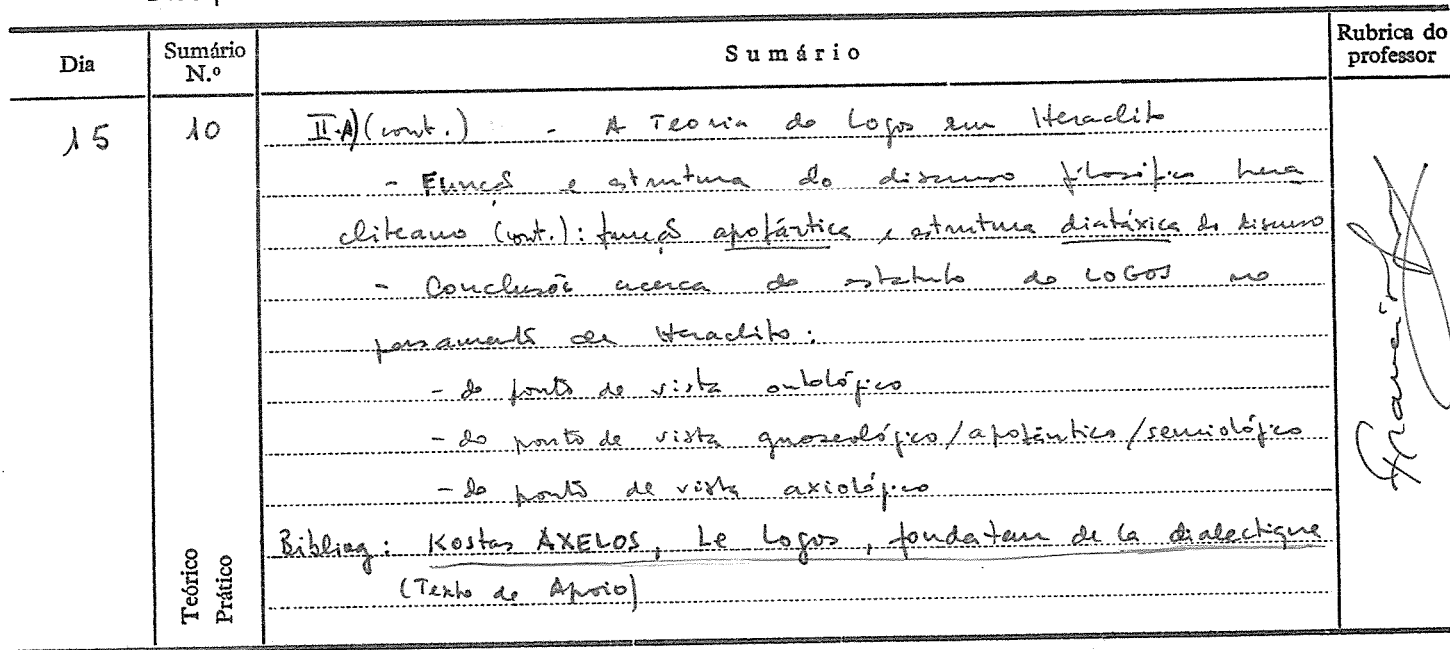 Dia
Sumário N.º
Sumário
Rubrica do professor
15
10
II-A) (cont.) - A Teoria do Logos em Heraclito
- Função e estrutura do discurso filosófico hera
cliteano (cont.): função apofântica e estrutura diatáxica do discurso
- Conclusão acerca do estatuto do LOGOS no
pensamento de Heraclito:
- do ponto de vista ontológico
- do ponto de vista gnoseológico/apofântico/semiológico
- do ponto de vista axiológico
Bibliog: Kostas AXELOS, Le Logos, fondateur de la dialectique
(Texto de Apoio)
Teórico
Prático